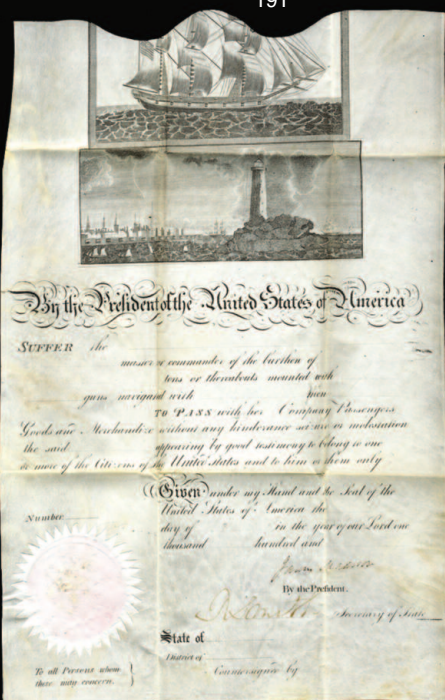 191
By the President of the United States of America
SUFFER the
master or commander of the burthen of
tons or thereabouts mounted with
guns navigated with men
TO PASS with her Company Passengers
Goods and Merchandize without any hinderance seizure or molestation
the said appearing by good testimony to belong to one
or more of the Citizens of the United States and to him or them only
Given under my Hand and the Seal of the
United States of America the
Number
day of in the year of our Lord one
thousand hundred and
By the President.
Secretary of State
State of
District of
To all Persons whom
these may concern.
Countersigned by